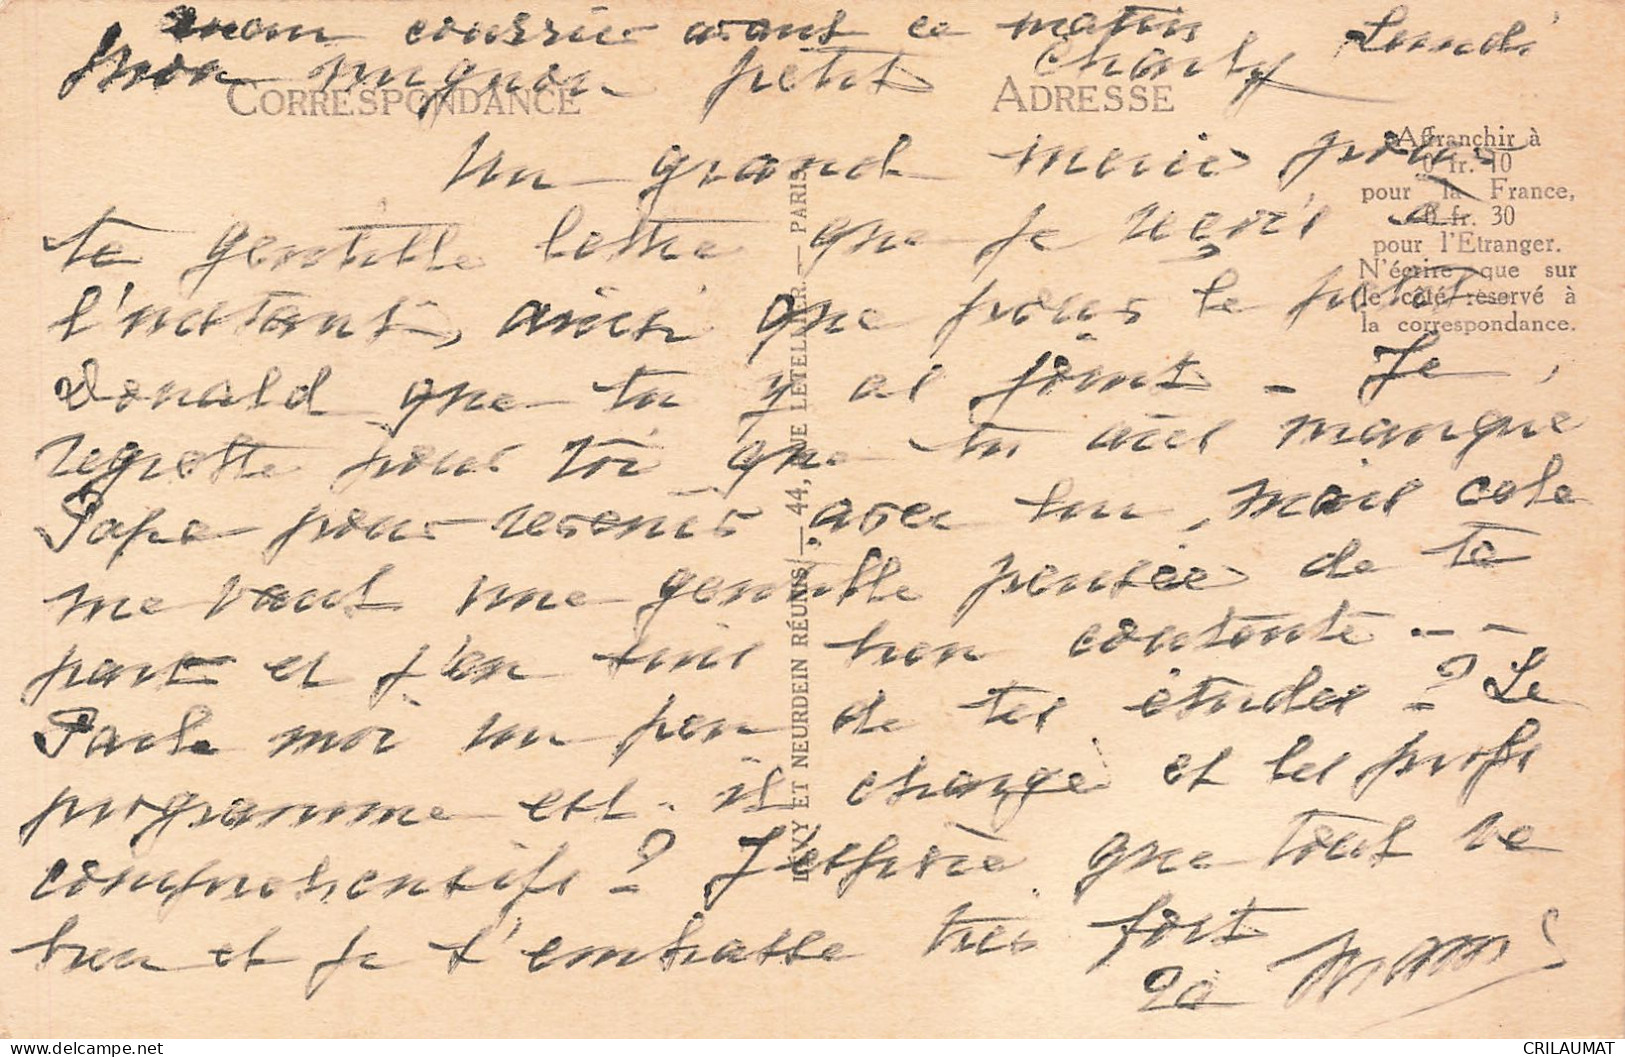 mon courrier avant ce matin Lundi
Mon mignon petit Charly
CORRESPONDANCE
ADRESSE
Un grand merci pour
te gentille lettre que je reçois a
l'instant, ainsi que pour le petit
Donald que tu y as joint - Je
regrette pour toi que tu aies manque
Papa pour revenir avec lui, mais cela
me vaut une gentille pensée de ta
part et j'en suis bien contente - -
Parle moi un peu de tes études ? Le
programme est-il changé et les profs
compréhensifs ? J'espère que tout va
bien et je t'embrasse très fort
Ta Mami
Affranchir à
0 fr. 10
pour la France,
0 fr. 30
pour l'Etranger.
N'écrire que sur
le côté réservé à
la correspondance.
LÉVY ET NEURDEIN RÉUNIS, — 44, RUE LETELLIER. — PARIS.
CRILAUMAT